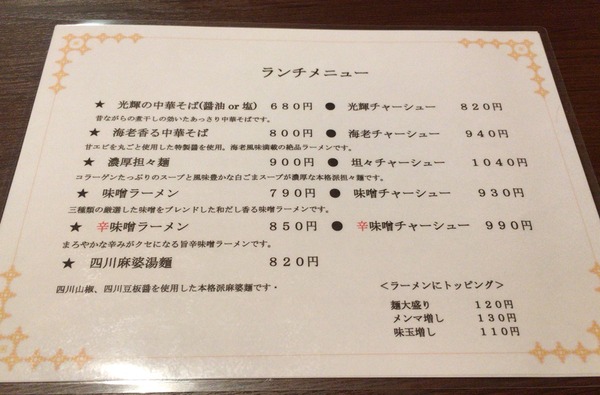 ランチメニュー
★ 光輝の中華そば(醤油 or 塩) 680円 ● 光輝チャーシュー 820円
昔ながらの煮干しの効いたあっさり中華そばです。
★ 海老香る中華そば 800円 ● 海老チャーシュー 940円
甘エビを丸ごと使用した特製醤を使用。海老風味満載の絶品ラーメンです。
★ 濃厚担々麺 900円 ● 坦々チャーシュー 1040円
コラーゲンたっぷりのスープと風味豊かな白ごまスープが濃厚な本格派担々麺です。
★ 味噌ラーメン 790円 ● 味噌チャーシュー 930円
三種類の厳選した味噌をブレンドした和だし香る味噌ラーメンです。
★ 辛味噌ラーメン 850円 ● 辛味噌チャーシュー 990円
まろやかな辛みがクセになる旨辛味噌ラーメンです。
★ 四川麻婆湯麺 820円
四川山椒、四川豆板醤を使用した本格派麻婆麺です・
＜ラーメンにトッピング＞
麺大盛り 120円
メンマ増し 130円
味玉増し 110円